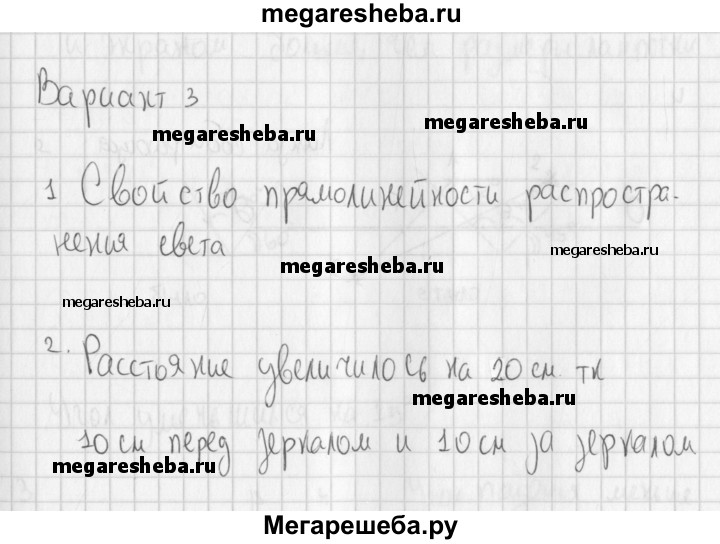 megaresheba.ru
Вариант 3
megaresheba.ru
megaresheba.ru
1 Свойство прямолинейности распростра-
нения света
megaresheba.ru
megaresheba.ru
megaresheba.ru
2. Расстояние увеличилось на 20 см. тк
megaresheba.ru
10 см перед зеркалом и 10 см за зеркалом
megaresheba.ru
Мегарешеба.ру